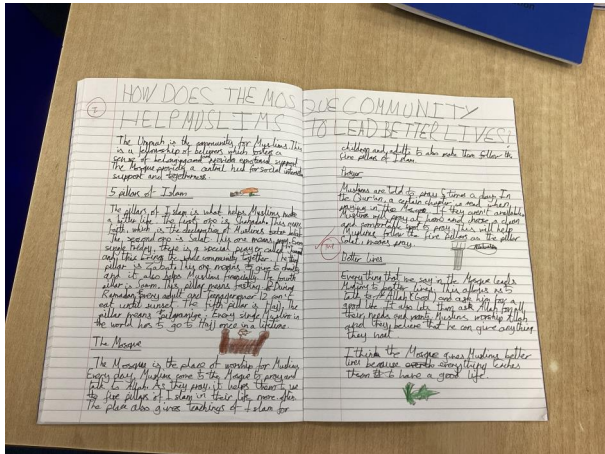 HOW DOES THE MOSQUE COMMUNITY
HELP MUSLIMS TO LEAD BETTER LIVES!
The Ummah is the community for Muslims. This
is a fellowship of believers which fosters a
sense of belonging and provide emotional support.
The Mosque provide a central hub for social
support and togetherness.
5 pillars of Islam
The pillars of Islam is what helps Muslims make
a better life. The first one is Shahadah. This means
faith, which is the declaration of Muslims
The second one is Salat. This one means pray. Every
single Friday, there is a special prayer called
and this brings the whole community together. The
pillar is Zakat. This one means to give to charity
and it also helps Muslims financially. The fourth
pillar is Sawm. This pillar means fasting. During
Ramadan, every adult and 12 can't
eat until sunset. The fifth pillar is Hajj. The
pillar means Pilgrimage. Every single Muslim in
the world has to go to Hajj once in a lifetime.
The Mosque
The Mosque is the place of worship for Muslims.
Every day, Muslims come to the Mosque to pray and
talk to Allah. As they pray, it helps them to use
the five pillars of Islam in their life more often.
The place also gives teachings of Islam for
children and adults to also make them follow the
five pillars of Islam.
Prayer
Muslims are told to pray 5 times a day. In
the Qur'an, a certain chapter is read when
praying in the Mosque. If they aren't available,
Muslims will pray at home and choose a clean
and comfortable spot to pray. This will help
Muslims follow the five pillars as the pillar
Salat means pray.
Better lives
Everything that we say in the Mosque leads
Muslims to better lives. This allows us to
talk to Allah (God) and ask him for a
good life. It also lets them ask Allah for all
their needs and wants. Muslims worship Allah
and they believe that he can give anything
they want.
I think the Mosque gives Muslims better
lives because everything teaches
them to have a good life.